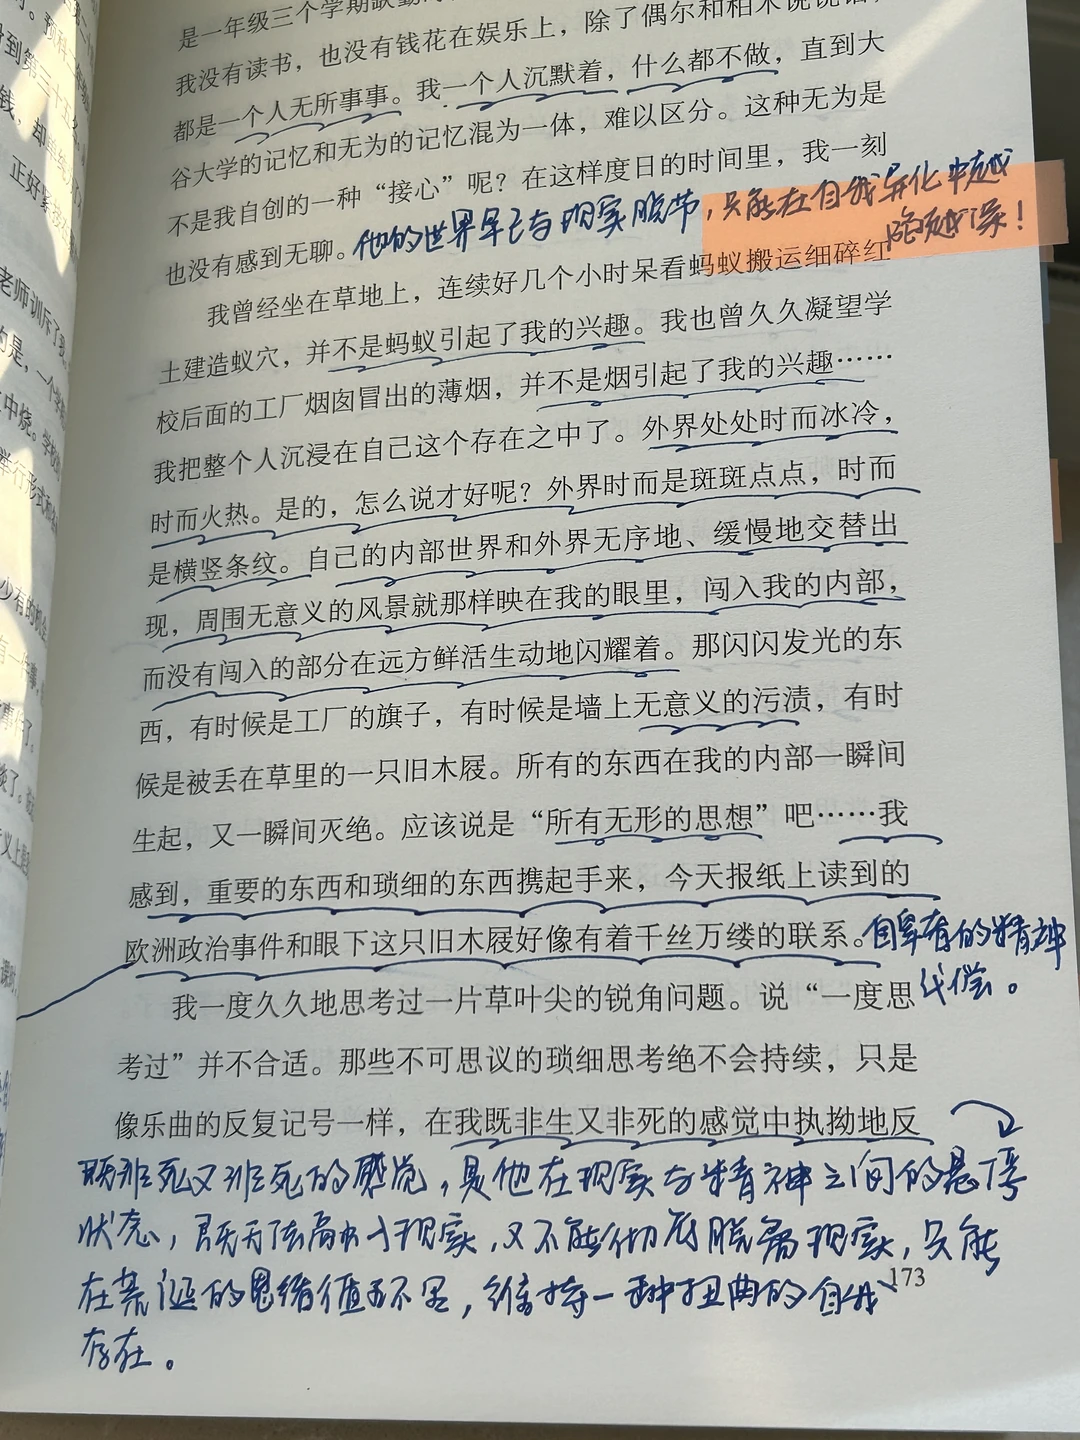 是一年级三个学期缺勤
我没有读书，也没有钱花在娱乐上，除了偶尔和柏木说说话，
都是一个人无所事事。我一个人沉默着，什么都不做，直到大
谷大学的记忆和无为的记忆混为一体，难以区分。这种无为是
不是我自创的一种“接心”呢？在这样度日的时间里，我一刻
也没有感到无聊。他的世界早已与现实脱节，只能在自我异化中越
陷越深！
我曾经坐在草地上，连续好几个小时呆看蚂蚁搬运细碎红
土建造蚁穴，并不是蚂蚁引起了我的兴趣。我也曾久久凝望学
校后面的工厂烟囱冒出的薄烟，并不是烟引起了我的兴趣……
我把整个人沉浸在自己这个存在之中了。外界处处时而冰冷，
时而火热。是的，怎么说才好呢？外界时而是斑斑点点，时而
是横竖条纹。自己的内部世界和外界无序地、缓慢地交替出
现，周围无意义的风景就那样映在我的眼里，闯入我的内部，
而没有闯入的部分在远方鲜活生动地闪耀着。那闪闪发光的东
西，有时候是工厂的旗子，有时候是墙上无意义的污渍，有时
候是被丢在草里的一只旧木屐。所有的东西在我的内部一瞬间
生起，又一瞬间灭绝。应该说是“所有无形的思想”吧……我
感到，重要的东西和琐细的东西携起手来，今天报纸上读到的
欧洲政治事件和眼下这只旧木屐好像有着千丝万缕的联系。自卑者的精神
代偿。
我一度久久地思考过一片草叶尖的锐角问题。说“一度思
考过”并不合适。那些不可思议的琐细思考绝不会持续，只是
像乐曲的反复记号一样，在我既非生又非死的感觉中执拗地反
既非死又非死的感觉，是他在现实与精神之间的悬停
状态，既无法融入现实，又不能彻底脱离现实，只能
在荒诞的思绪循而不呈，维持一种扭曲的自我
存在。
173